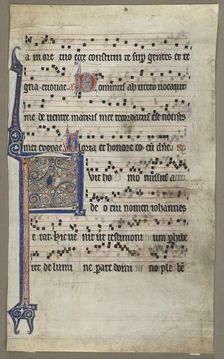 in ore tuo ecce constitui te sup gentes et re
gna euouae Dominus ab utero uocauit
me de uentre matris mee recordatus est nois
mei euouae Gloria et honore co dne
uit ho missus
deo cui nomen iohannes
erat hic ue nit ut testimoni um phibe
ret de lumi ne pare domi no ple be